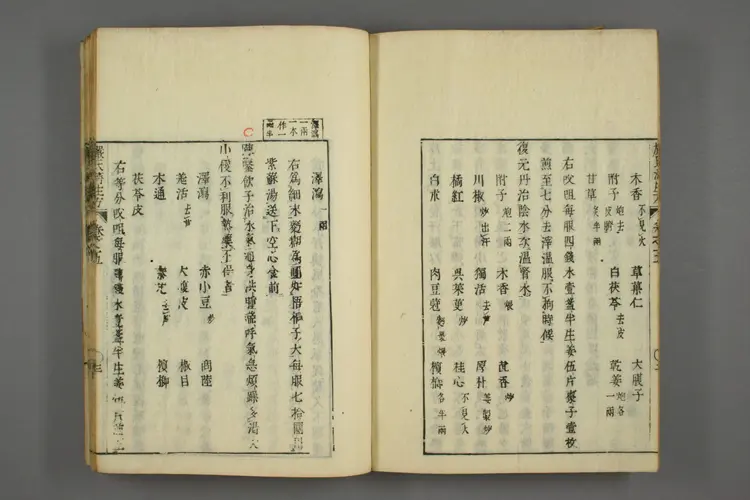 嚴氏濟生方 卷之五
木香不見火 草菓仁 大腹子
附子炮去皮臍 白茯苓去皮 乾姜炮各一兩
甘草炙半兩
右㕮咀每服四錢水壹盞半生姜伍片棗子壹枚
煎至七分去滓溫服不拘時候
復元丹治陰水次溫腎水
附子炮二兩 木香煨 茴香炒
川椒炒出汗 獨活去蘆 厚朴姜製炒
橘紅 吳茱萸炒 桂心不見火
白朮 肉豆蔻麵裹煨 檳榔各半兩
澤瀉一兩
右為細末糊為圓如梧桐子大每服七拾圓
紫蘇湯送下空心食前
澤瀉一兩一本作一兩半
疎鑿飲子治水氣通身洪腫喘呼氣急煩躁多渴大
小便不利服熱藥不得者
澤瀉 赤小豆炒 商陸
羌活去蘆 大腹皮 椒目
木通 秦艽去蘆 檳榔
茯苓皮
右等分㕮咀每服肆錢水壹盞半生姜
嚴氏濟生方 卷之五